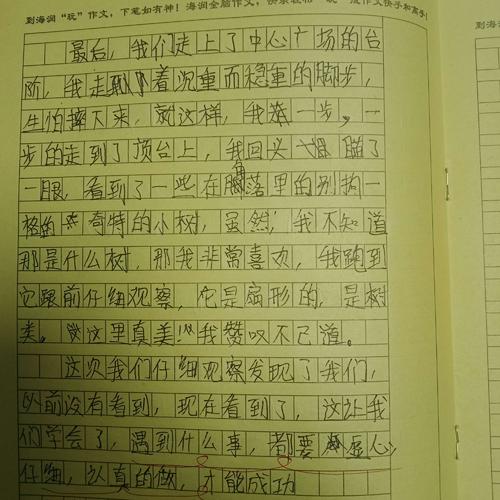 到海润“玩”作文，下笔如有神！海润全脑作文，快乐轻松“玩”成作文快手和高手！
最后，我们走上了中心广场的台
阶，我走到了着沉重而稳重的脚步，
生怕摔下来，就这样，我一步，一
步的走到了顶台上，我回头瞄了
一眼，看到了一些在角落里的别拘一
格的奇特的小树，虽然，我不知道
那是什么树，那我非常喜欢，我跑到
它跟前仔细观察，它是扇形的，是树
类。“这里真美！”我赞叹不已道。
这次我们仔细观察发现了我们，
以前没有看到，现在看到了，这让我
们学会了，遇到什么事，都要虚心，
仔细，认真的做，才能成功
到海润